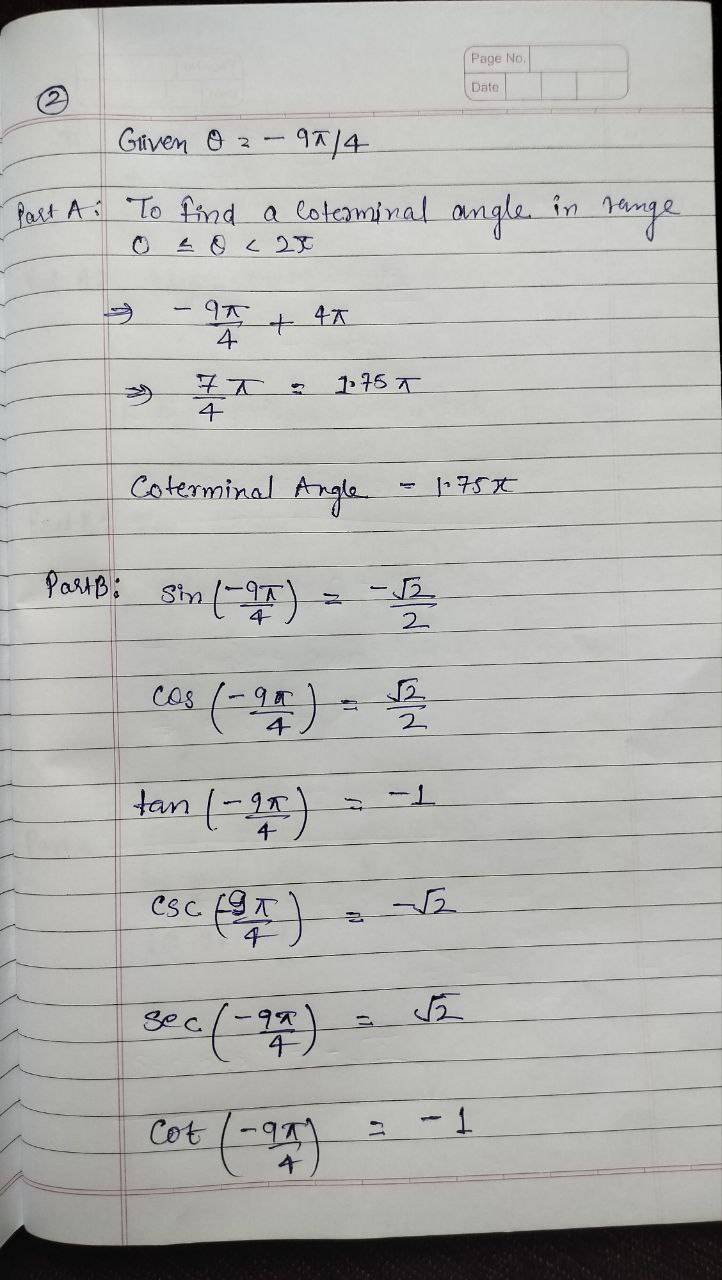 Page No.
Date
②
Given θ = - 9π/4
Part A: To find a coterminal angle in range
0 ≤ θ < 2π
⇒ - 9π/4 + 4π
⇒ 7/4 π = 1.75 π
Coterminal Angle = 1.75π
Part B: Sin (-9π/4) = -√2/2
cos (-9π/4) = √2/2
tan (-9π/4) = -1
csc (-9π/4) = -√2
sec (-9π/4) = √2
Cot (-9π/4) = -1